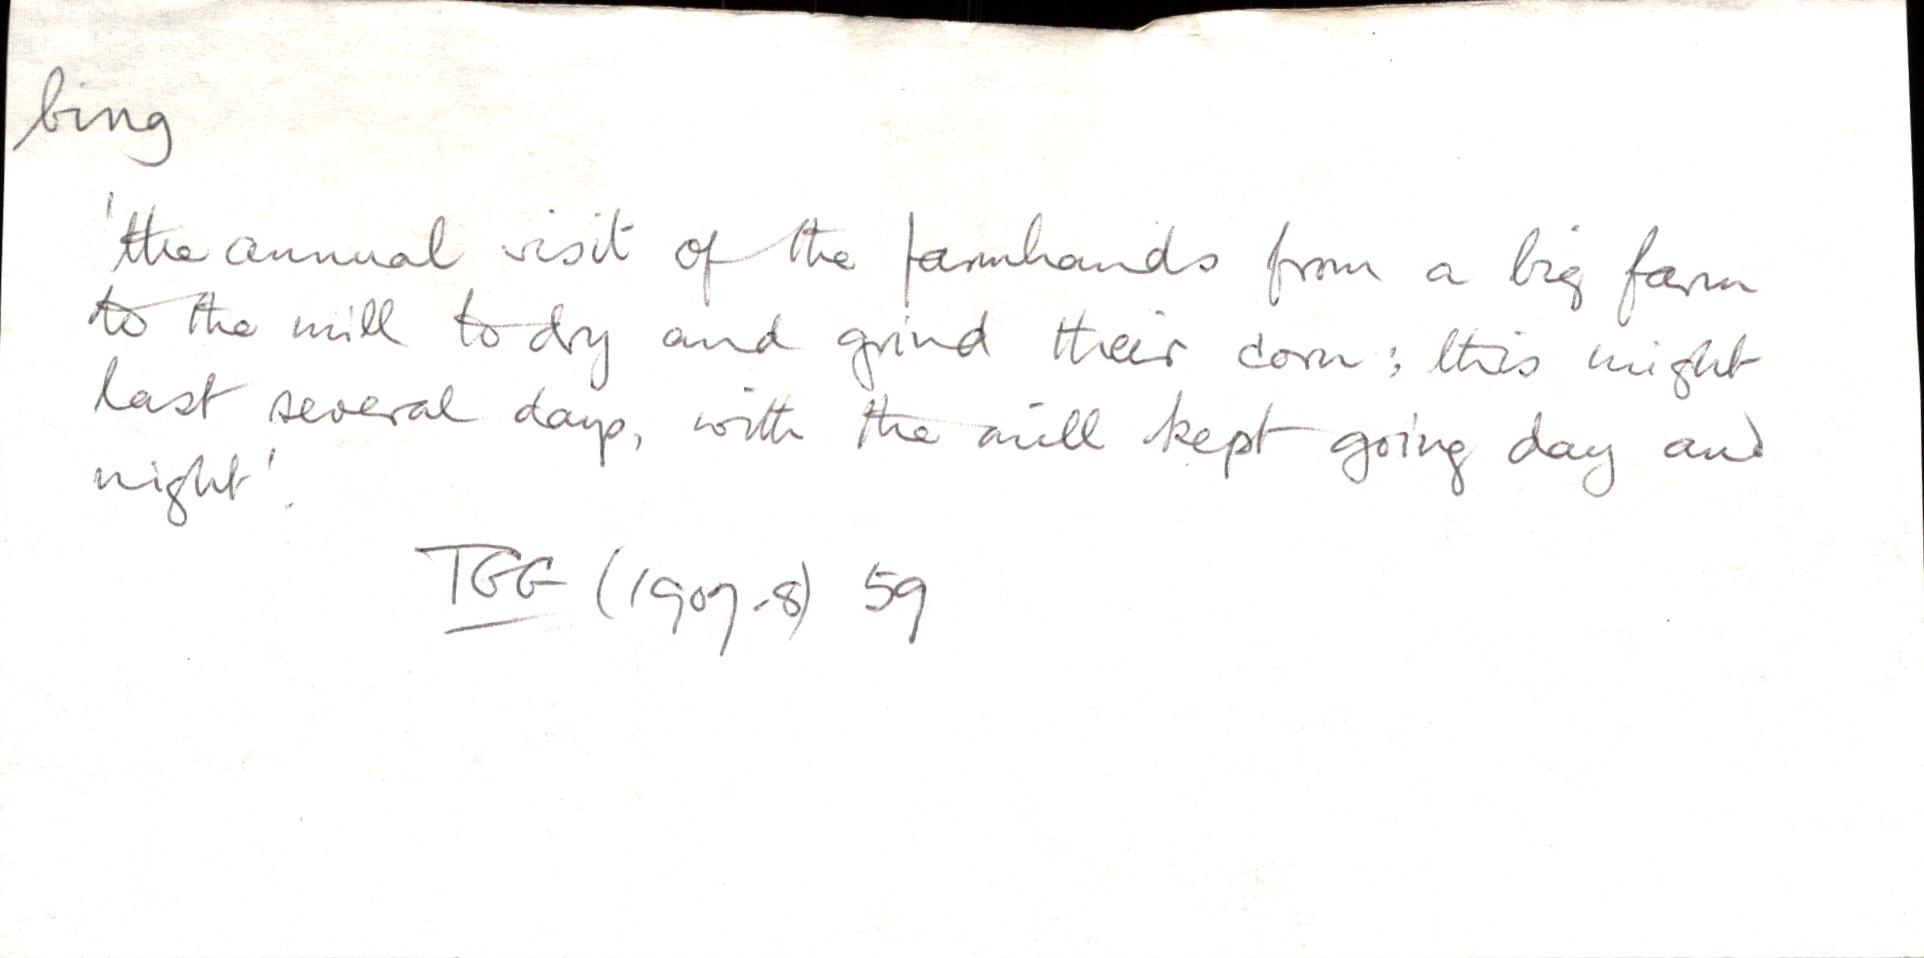 bing
'the annual visit of the farmhands from a big farm
to the mill to dry and grind their corn; this might
last several days, with the mill kept going day and
night'.
TGG (1907-8) 59